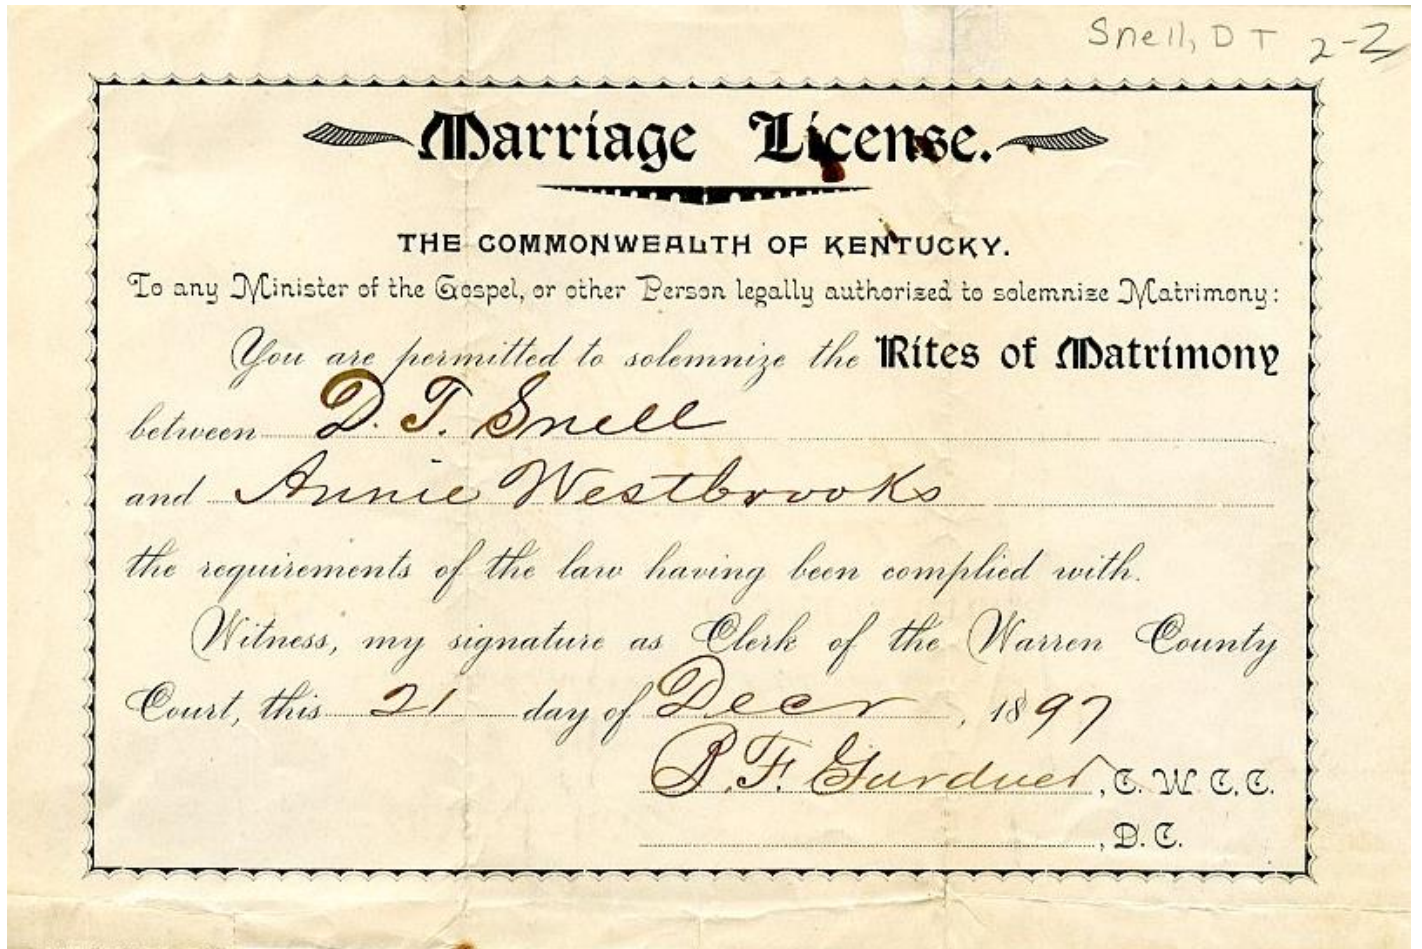 Snell, D T 2-2
Marriage License.
THE COMMONWEALTH OF KENTUCKY.
To any Minister of the Gospel, or other Person legally authorized to solemnize Matrimony:
You are permitted to solemnize the Rites of Matrimony
between D. T. Snell
and Annie Westbrooks
the requirements of the law having been complied with.
Witness, my signature as Clerk of the Warren County
Court, this 21 day of Decr, 1897
P. F. Gardner, C. W. C. C.
, D. C.